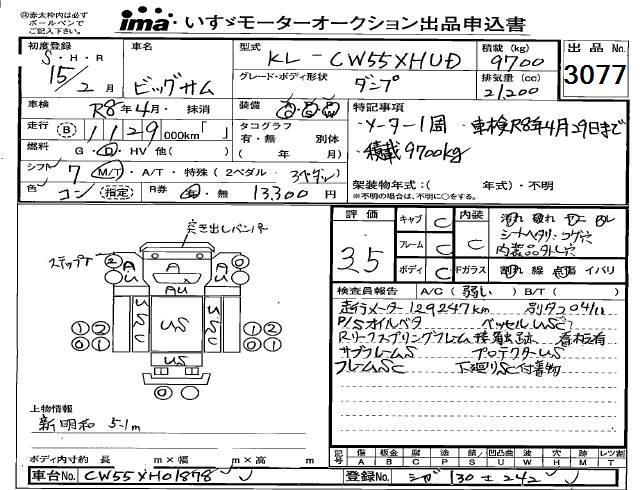 ㊟赤太枠内は必ず
ボールペンで
ご記入下さい。
ima いすゞモーターオークション出品申込書
初度登録
S・H・R
15年2月
車名
ビッグサム
型式
KL-CW55XHUD
グレード・ボディ形状
ダンプ
積載 (kg)
9700
排気量 (cc)
21,200
出品No.
3077
車検 R8年4月・抹消
装備
走行 (B) 1129000km「 」
タコグラフ
有・無 別体
( 年 月)
燃料 G・D・HV 他( )
特記事項
・メーター1周 ・車検R8年4月29日まで
・積載9700kg
シフト 7 M/T・A/T・特殊(2ペダル・3ペダル)
色 コン (指定) R券 有・無 13,300円
架装物年式:( 年式)・不明
※不明の場合は、不明に○をする。
評価
3.5
キャブ C
フレーム C
ボディ C
内装 C
Fガラス
シートヘタリ:コゲ穴
内装品外し穴
割れ 線 点傷 イバリ
突き出しバンパー
ステップ
検査員報告 A/C(弱い) B/T( )
走行メーター129247km
P/Sオイルベタ ベッセルUSC
Rリーフスプリングフレーム接触跡 看板有
サブフレームS プロテクターUS
フレームSC 下廻りSC付着物
A
AU
AU
AU
USC
US
USC
US
上物情報
新明和 5.1m
ボディ内寸約 長 m×幅 m×高 m
記号 傷 板金 腐 塗 錆 凹凸曲 波 穴 跡 レッツ割
A B C P S U W H M T
車台No. CW55XH01878
登録No. 130 242